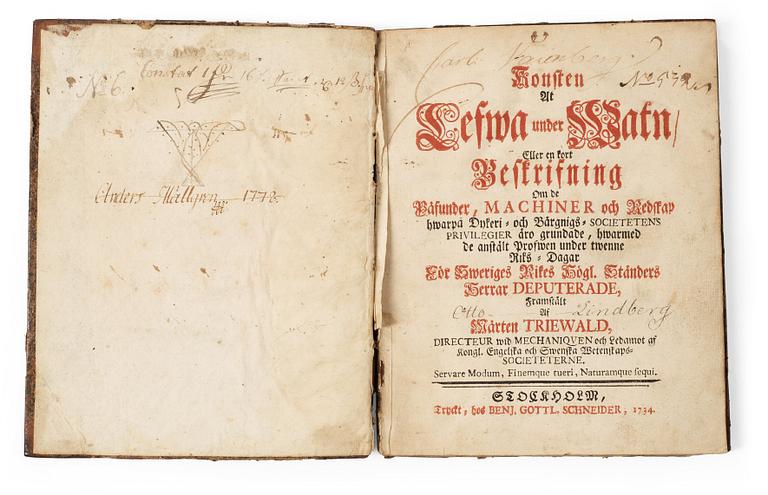 No 6.
Anders Mällgren 1772.
Carl
No 572
Konsten
At
Lefwa under Watn/
Eller en kort
Beskrifning
Om de
Påfunder, MACHINER och Redskap
hwarpå Dykeri- och Bärgnigs-SOCIETETENS
PRIVILEGIER äro grundade, hwarmed
de anstält Profwen under twenne
Riks-Dagar
För Sweriges Rikes Högl. Ständers
Herrar DEPUTERADE,
Framstält
Otto Af Lindberg
Mårten TRIEWALD,
DIRECTEUR wid MECHANIQVEN och Ledamot af
Kongl. Engelska och Swenska Wetenskaps-
SOCIETETERNE.
Servare Modum, Finemque tueri, Naturamque sequi.
STOCKHOLM,
Tryckt, hos BENJ. GOTTL. SCHNEIDER, 1734.